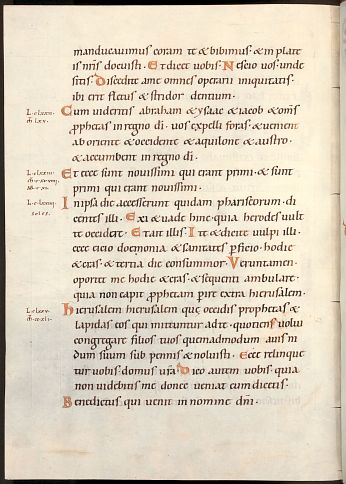 manducauimus coram te & bibimus · & in plate
is nr̄is docuisti · Et dicet uobis · Nescio uos · unde
sitis · Discedite a me omnes operarii iniquitatis ·
ibi erit fletus & stridor dentium ·
Cum uideritis abraham & ysaac & iacob & om̄s
p̄phetas in regno dī · uos expelli foras · & uenient
ab oriente & occidente & aquilone & austro ·
& accumbent in regno dī ·
Et ecce sunt nouissimi qui erant primi · & sunt
primi qui erant nouissimi ·
In ipsa die accesserunt quidam phariseorum · di
centes illi · Exi & uade hinc · quia herodes uult
te occidere · Et ait illis · Ite & dicite uulpi illi ·
ecce eicio doemonia & sanitates p̄ficio · hodie
& cras · & tertia die consummor · Veruntamen
oportet me hodie & cras · & sequenti ambulare ·
quia non capit p̄phetam pire extra hierusalem ·
Hierusalem hierusalem que occidis prophetas &
lapidas eos qui mittuntur ad te · quotiens uolui
congregare filios tuos quemadmodum auis ni
dum suum sub pennis & noluisti · Ecce relinque
tur uobis · domus ur̄a · Dico autem uobis · quia
non uidebitis me donec ueniat cum dicetis ·
Benedictus qui uenit in nomine dn̄i ·